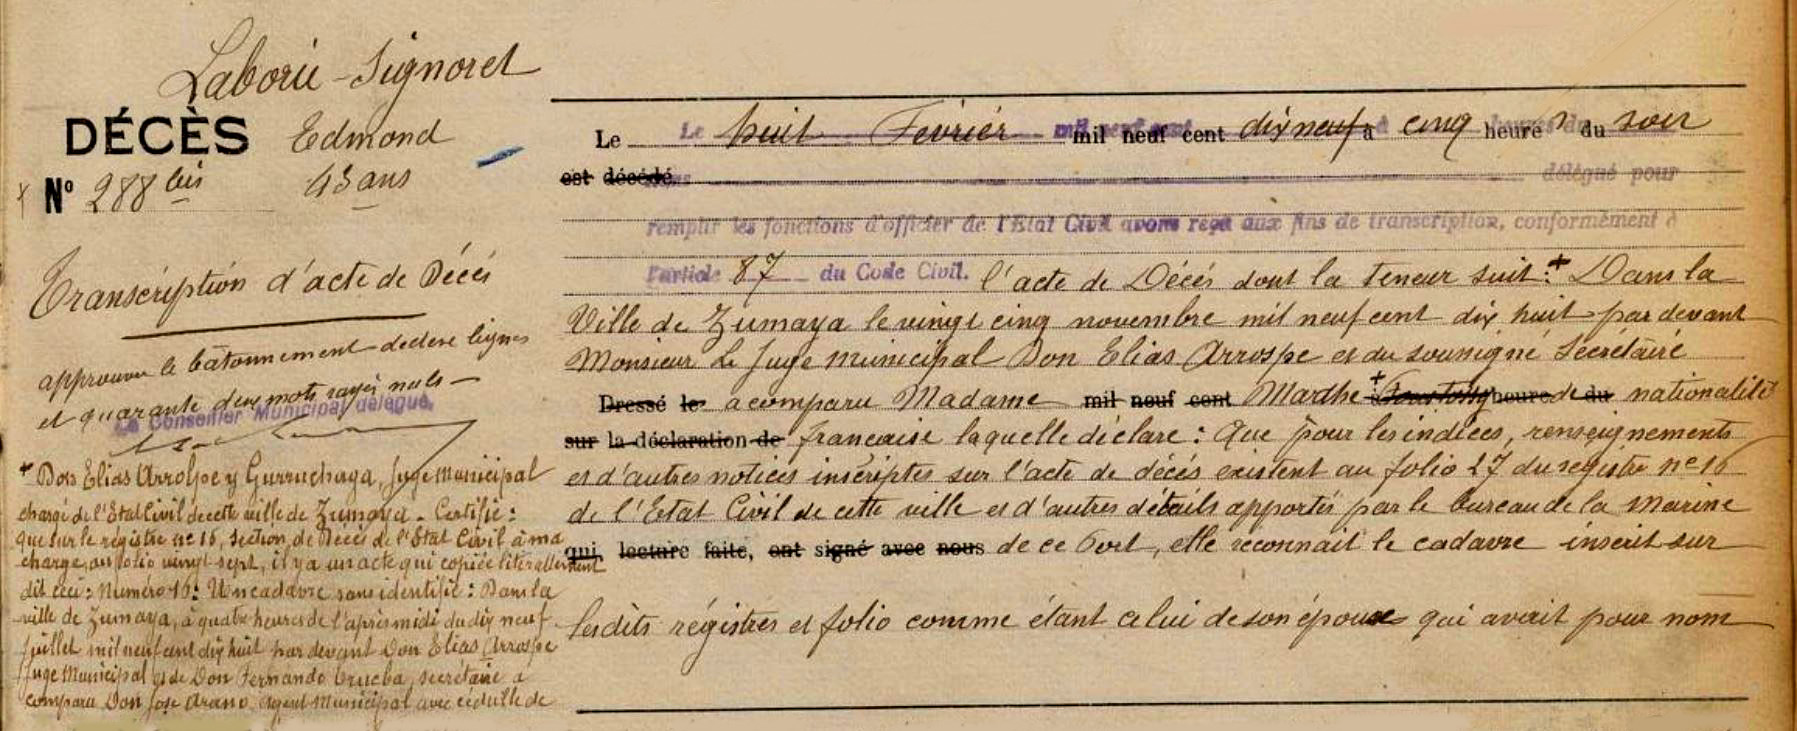 Laborie - Signoret
DÉCÈS Edmond
43 ans
N° 288 bis
Transcription d'acte de Décés
approuvé le bâtonnement de deux lignes
et quarante deux mots rayés nuls —
Le Conseiller Municipal délégué,
+ Don Elias Arrospe y Gurruchaga, Juge Municipal
chargé de l'Etat Civil de cette ville de Zumaya - Certifie :
que sur le registre n° 16, section, de Décès de l'Etat Civil à ma
charge, au folio vingt sept, il y a un acte qui copiée litterallement
dit ceci : Numéro 16 : Un cadavre sans identifié : Dans la
ville de Zumaya, à quatre heures de l'après midi du dix neuf
Juillet mil neuf cent dix huit par devant Don Elias Arrospe
Juge Municipal et de Don Fernando Trueba, secrétaire a
comparu Don Jose Arano, agent Municipal avec cédulle de
Le huit Février mil neuf cent dix neuf à cinq heures du soir
est décédé délégué pour
remplir les fonctions d'officier de l'Etat Civil avons reçu aux fins de transcription, conformément à
l'article 87 du Code Civil. l'acte de Décés dont la teneur suit : + Dans la
Ville de Zumaya le vingt cinq novembre mil neuf cent dix huit par devant
Monsieur Le Juge Municipal Don Elias Arrospe et du soussigné Secrétaire
Dressé le a comparu Madame mil neuf cent Marthe + heure de du nationalité
sur la déclaration de française laquelle déclare : Que pour les indices, renseignements
et d'autres notices inscriptes sur l'acte de décés existent au folio 27 du registre n° 16
de l'Etat Civil de cette ville et d'autres détails apportés par le bureau de la Marine
qui, lecture faite, ont signé avec nous de ce Port, elle reconnait le cadavre inscrit sur
lesdits régistres et folio comme étant celui de son époux qui avait pour nom